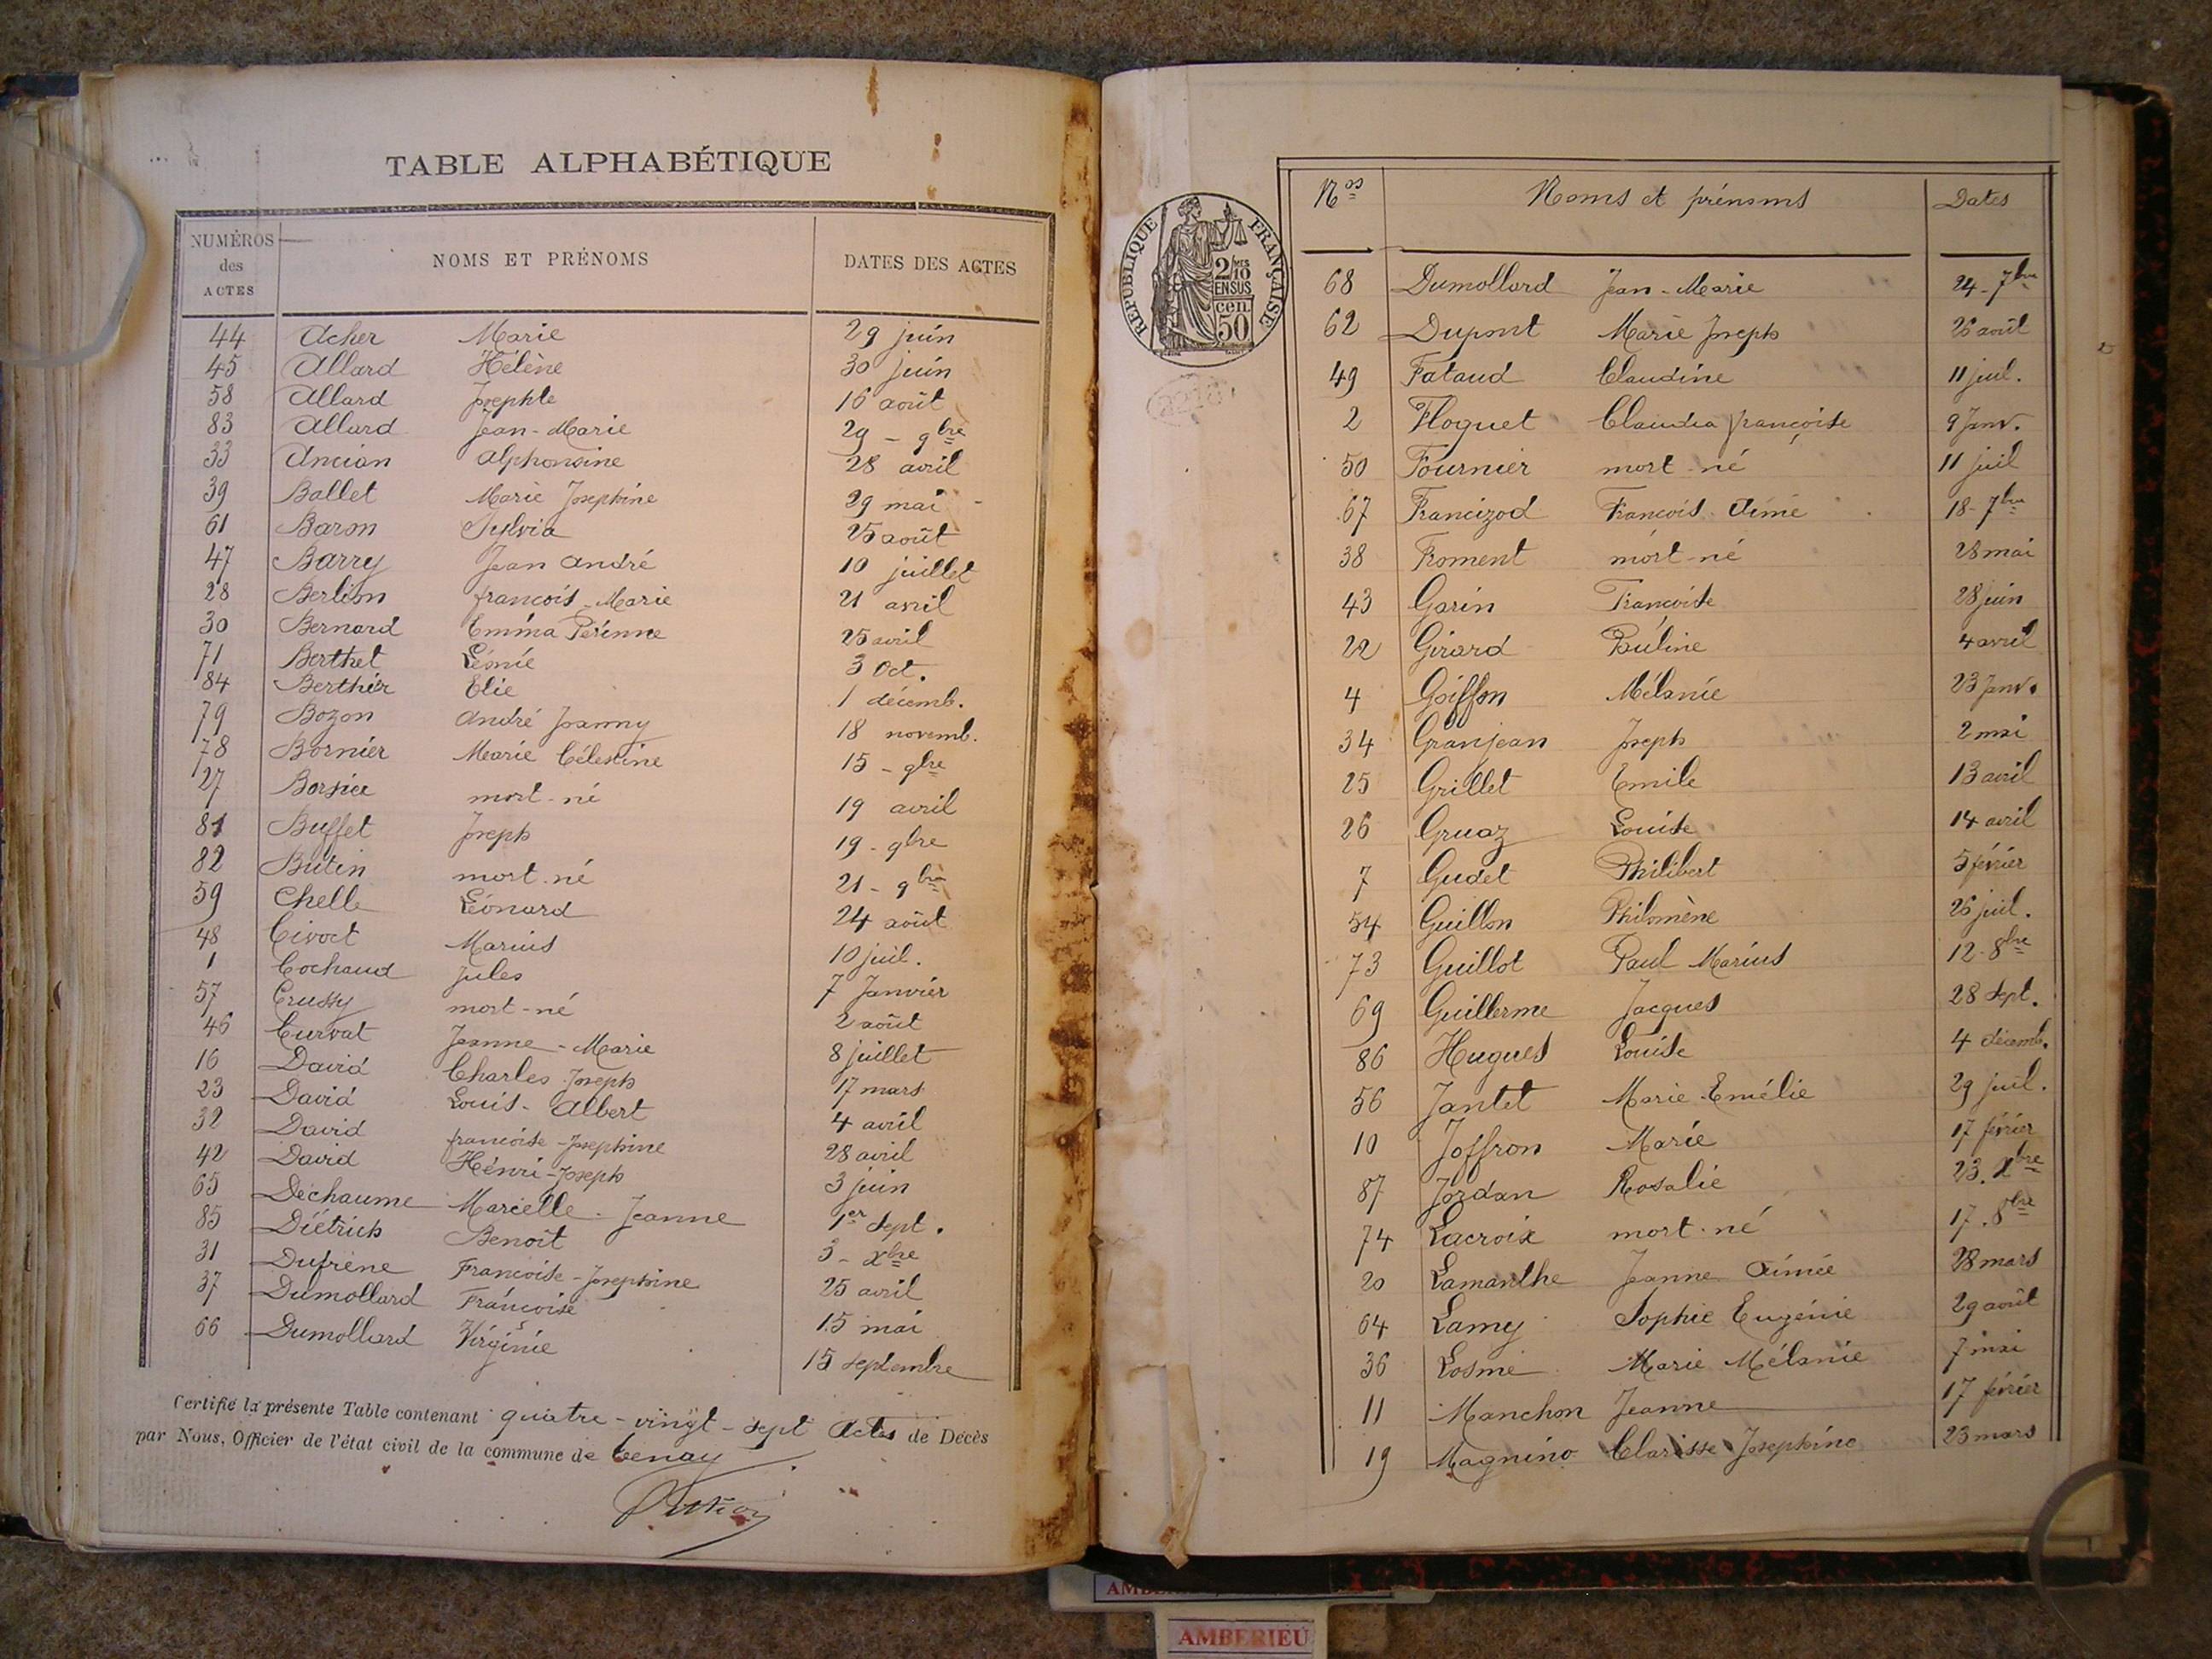 TABLE ALPHABÉTIQUE
NUMÉROS des ACTES NOMS ET PRÉNOMS DATES DES ACTES
44 Acher Marie 29 juin
45 Allard Hélène 30 juin
58 Allard Josephte 16 août
83 Allard Jean-Marie 29 - 9bre
33 Ancian Alphonsine 28 avril
39 Ballet Marie Josephine 29 mai
61 Baron Sylvia 25 août
47 Barry Jean André 10 juillet
28 Berlion françois-Marie 21 avril
30 Bernard Emma Périnne 25 avril
71 Berthet Léonie 3 Oct.
84 Berthier Elie 1 décemb.
79 Bozon André Joanny 18 novemb.
78 Bornier Marie Célestine 15 - 9bre
27 mort-né 19 avril
81 Buffet Joseph 19 - 9bre
82 Butin mort-né 21 - 9bre
59 Chelle Léonard 24 août
48 Civoct Marius 10 juil.
1 Cochaud Jules 7 Janvier
57 Crussy mort-né 2 août
46 Curvat Jeanne-Marie 8 juillet
16 David Charles Joseph 17 mars
23 David Louis-Albert 4 avril
32 David françoise-Josephine 28 avril
42 David Hénri-Joseph 3 juin
65 Dechaume Marcelle-Jeanne 1er Sept.
85 Diétrich Benoit 3 - Xbre
31 Dufrène Françoise-Josephine 25 avril
37 Dumollard Françoise 15 mai
66 Dumollard Virginie 15 septembre
Certifié la présente Table contenant quatre-vingt-sept Actes de Décès
par Nous, Officier de l'état civil de la commune de Tenay
REPUBLIQUE FRANÇAISE
2/10MES
EN SUS
50 cen.
Nos Noms et prénoms Dates
68 Dumollard Jean-Marie 24-7bre
62 Dupont Marie Joseph 26 août
49 Fataud Claudine 11 juil.
2 Floquet Claudia françoise 9 Janv.
50 Fournier mort-né 11 juil
67 Francizod François Aimé 18-7bre
38 Froment mort-né 28 mai
43 Garin Françoise 28 juin
22 Girard Pauline 4 avril
4 Goiffon Mélanie 23 Janv.
34 Granjean Joseph 2 mai
25 Grillet Emile 13 avril
26 Gruaz Louise 14 avril
7 Gudet Philibert 5 février
54 Guillon Philomène 26 juil.
73 Guillot Paul Marius 12-8bre
69 Guillerme Jacques 28 Sept.
86 Hugues Louise 4 décemb.
56 Jantet Marie-Emélie 29 juil.
10 Joffron Marie 17 février
87 Jordan Rosalie 23. Xbre
74 Lacroix mort-né 17. 8bre
20 Lamanthe Jeanne Aimée 28 mars
64 Lamy Sophie Eugénie 29 août
36 Losme Marie Mélanie 7 mai
11 Manchon Jeanne 17 février
19 Magnino Clarisse Josephine 23 mars
AMBERIEU